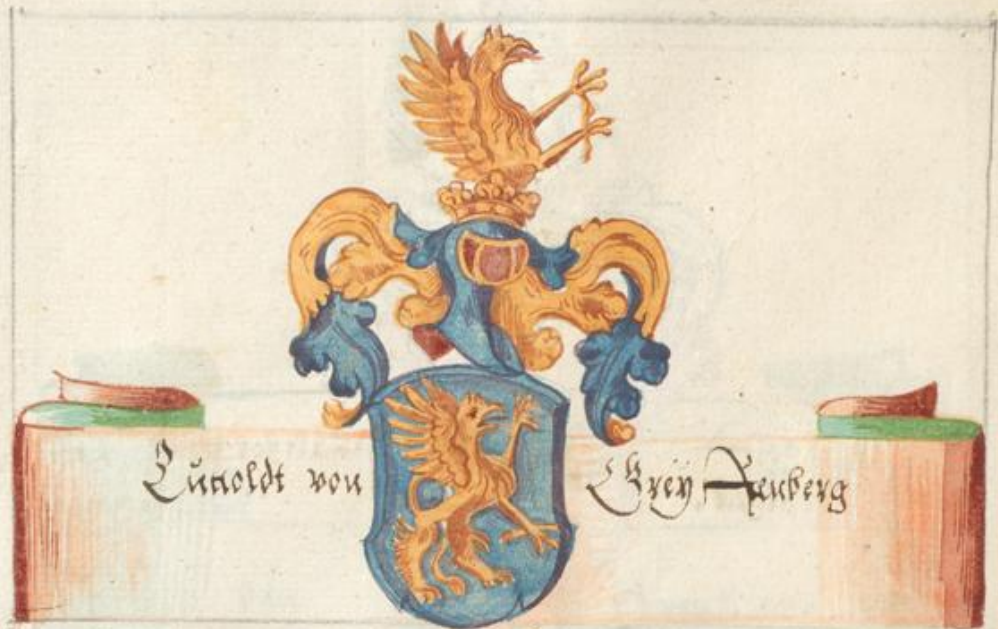 Lutoldt von Greÿffenberg